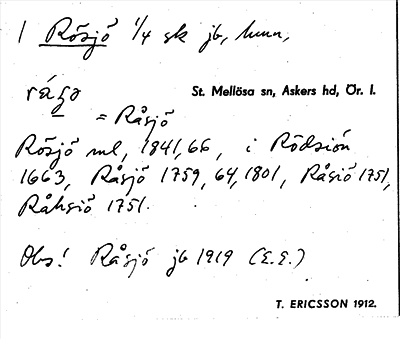 1 Rösjö 1/4 sk jb, hmn,
råʒo St. Mellösa sn, Askers hd, Ör. l.
= Råsjö
Rösjö ml, 1841, 66, i Rödsiön
1663, Råsjö 1759, 64, 1801, Råsiö 1751,
Råhsiö 1751.
Obs! Råsjö jb 1919 (E.E.)
T. ERICSSON 1912.